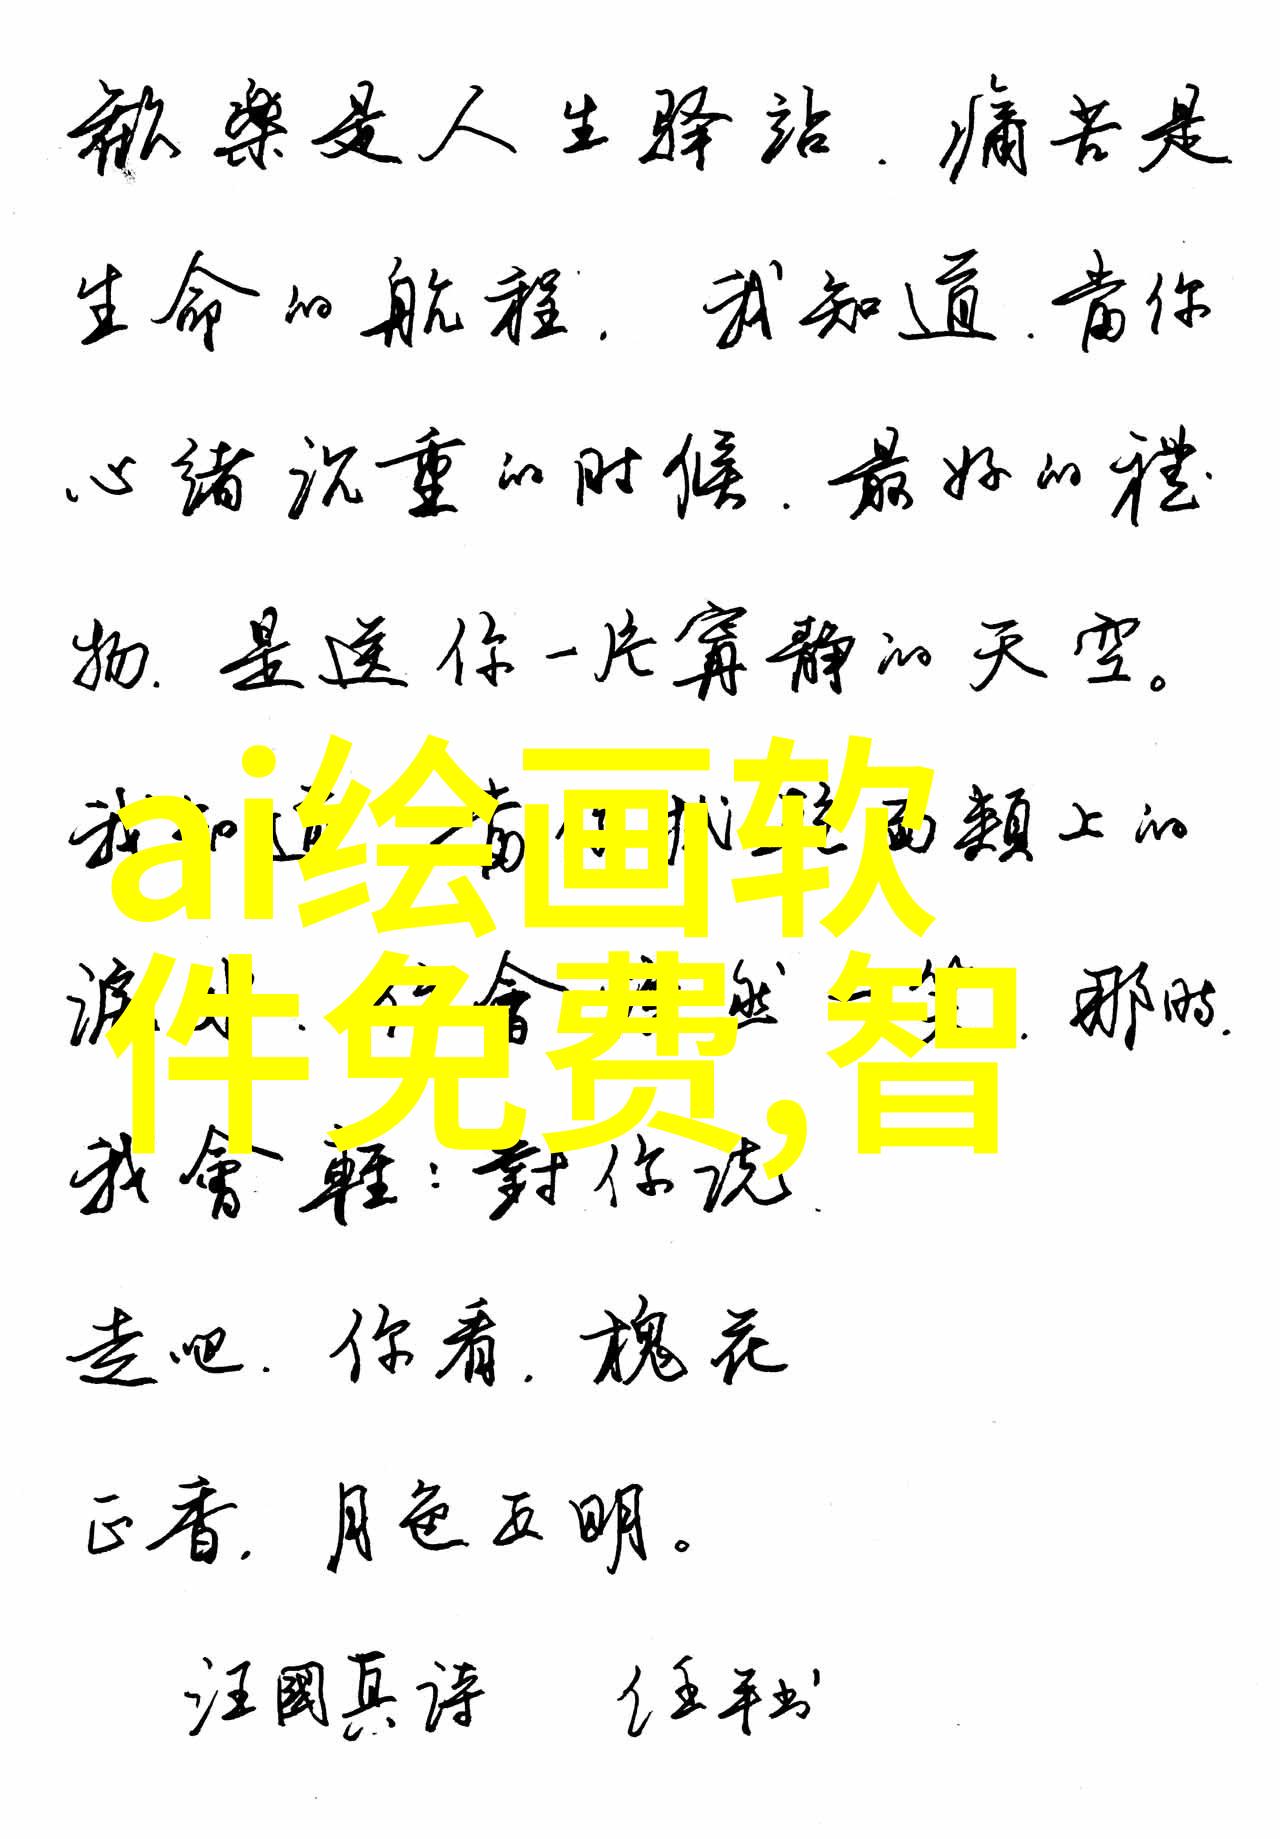 歡樂是人生驿站.痛苦是
生命的航程.我知道.當你
心緒沉重的时候.最好的禮
物.是送你一片寧靜的天空。
ai绘画软
我知道 當你 面頰上的
件免费,智
會 然一笑.那时.
我會輕:對你说.
走吧.你看.槐花
正香.月色正明。
汪國真诗 任平书